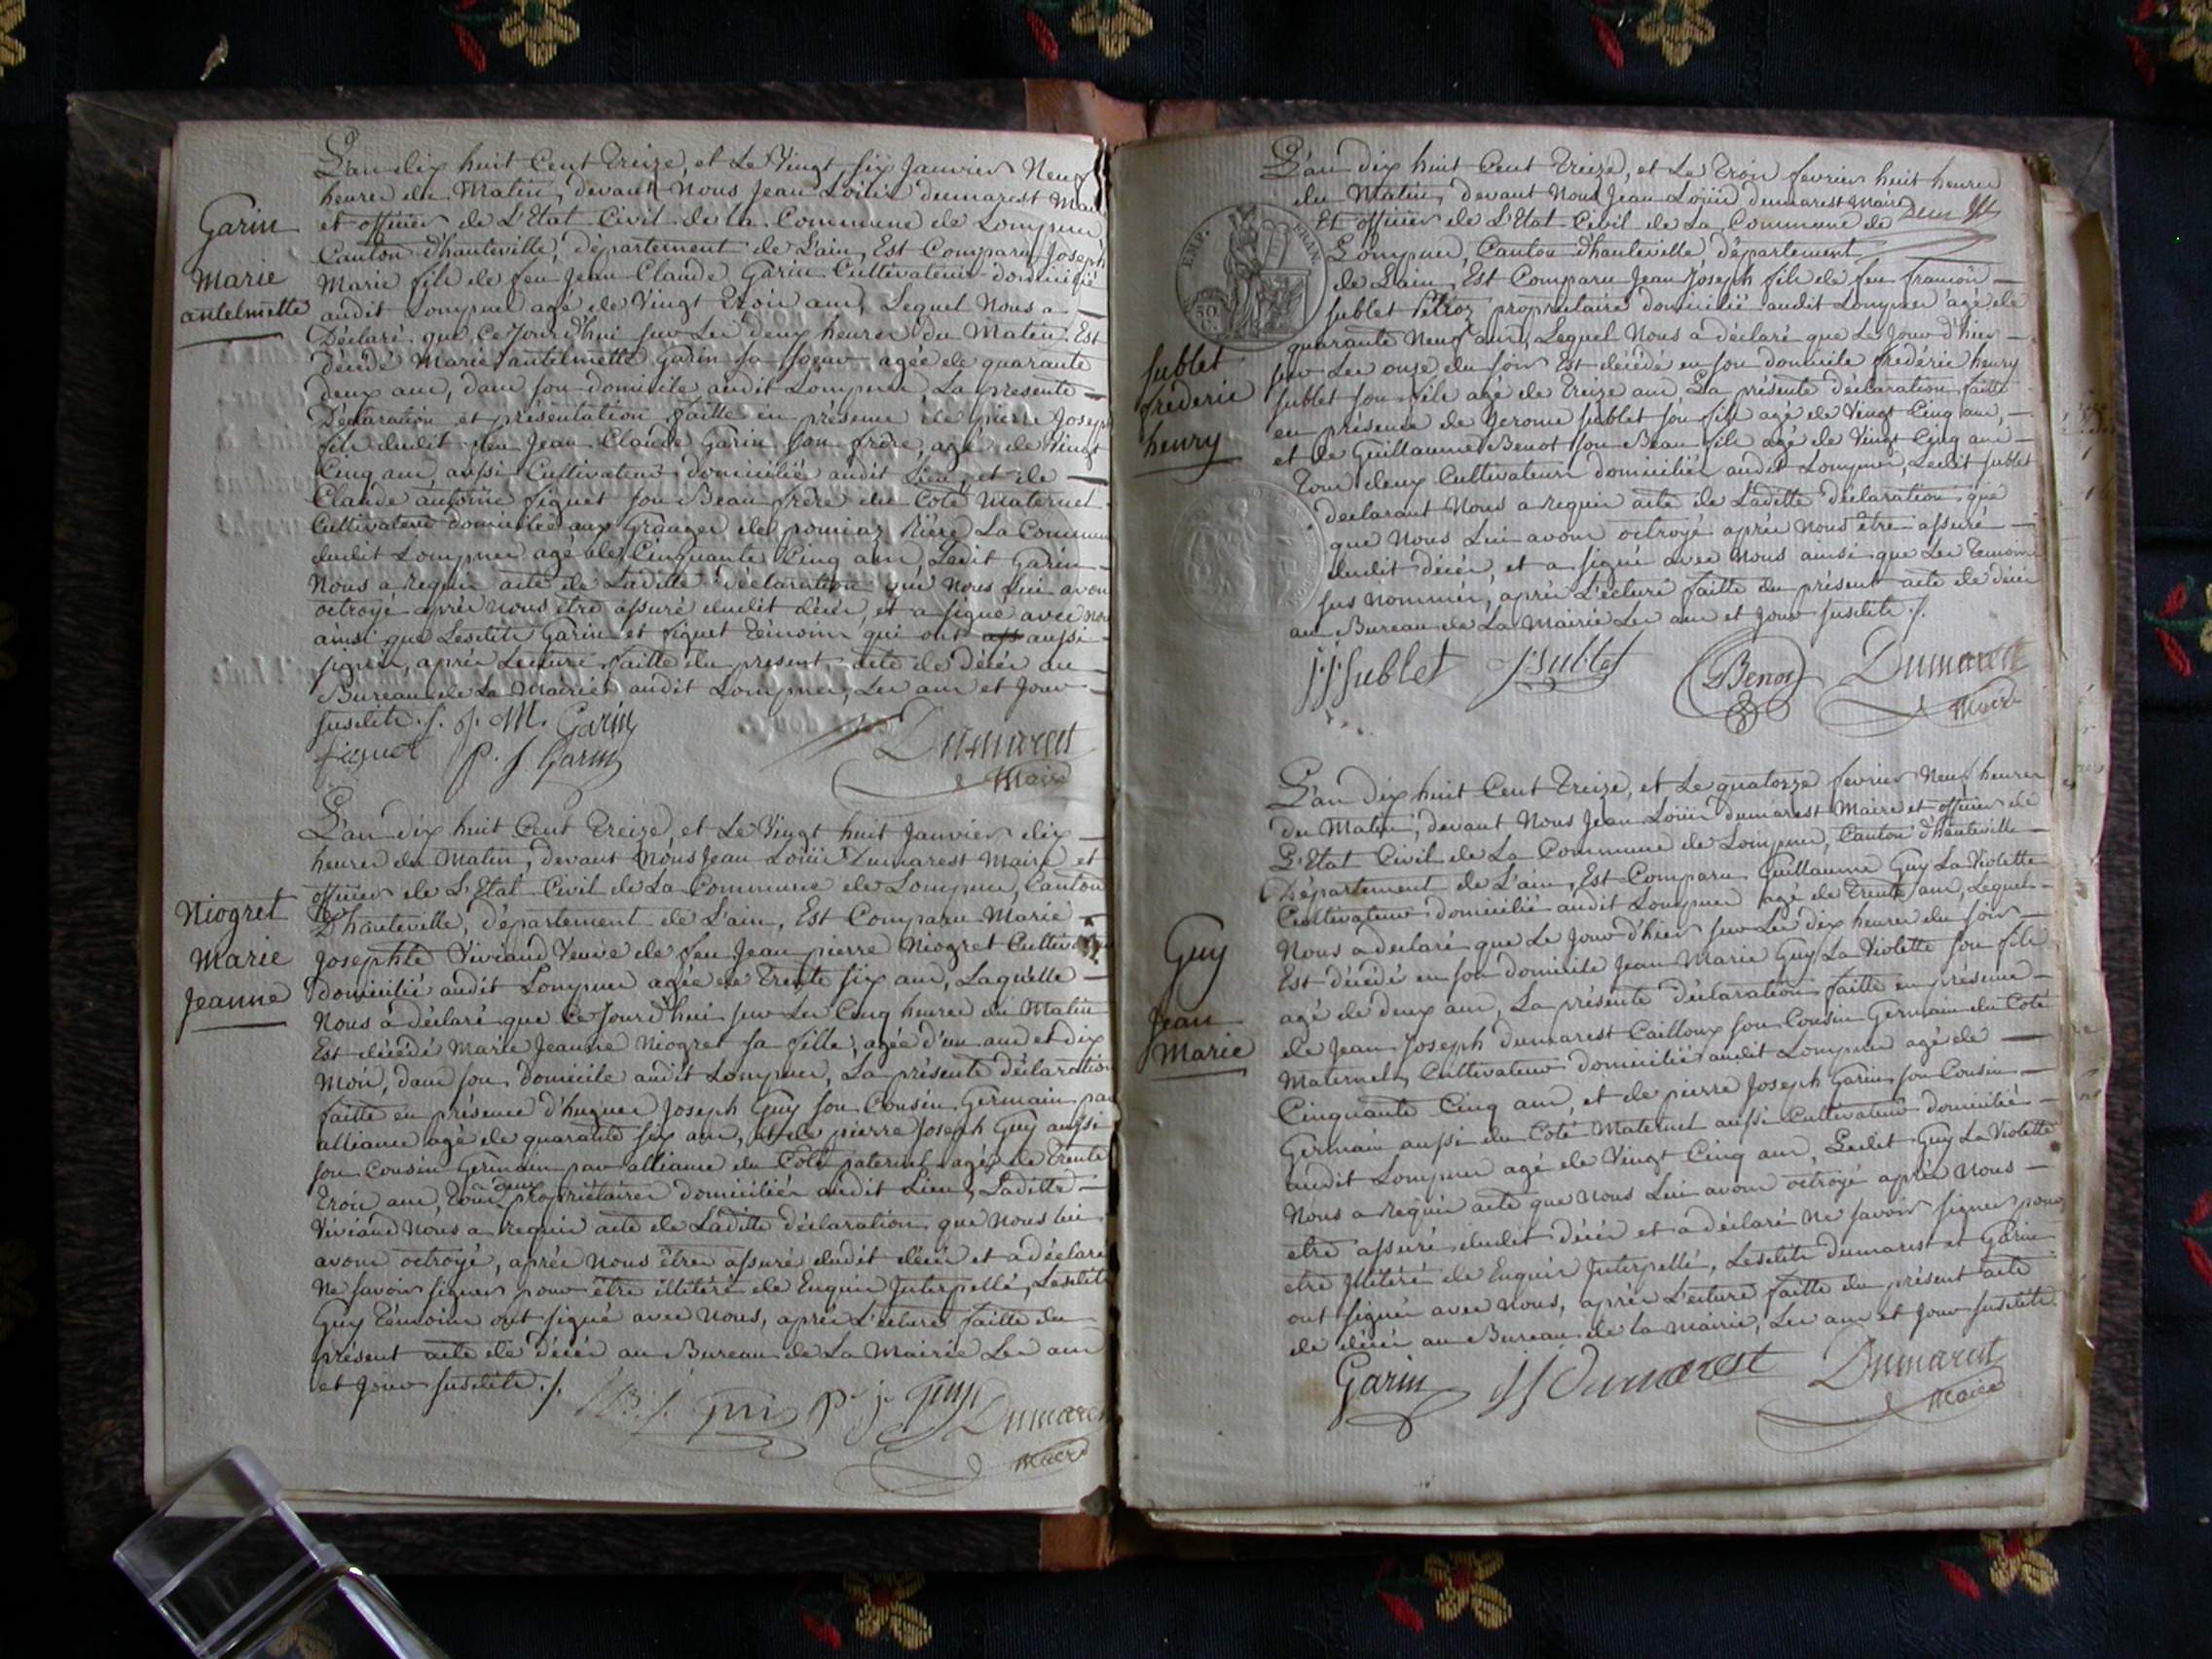 L'an dix huit Cent Treize, et Le Vingt six Janvier Neuf
heures du Matin, devant Nous Jean Loüis dumarest Maire
et officier de L'Etat Civil de la Commune de Lompnes
Canton d'hauteville, département de L'ain, Est Comparu Joseph
Marie fils de feu Jean Claude Garin Cultivateur domicilié
audit Lompnes agé de Vingt Trois ans, Lequel Nous a
Déclaré que Cejourd'hui sur Les deux heures du Matin, Est
décédé Marie antelmette Garin sa soeur agée de quarante
deux ans, dans son domicile audit Lompnes, La presente
Déclaration et présentation faitte en présence de pierre Joseph
fils dudit feu Jean Claude Garin son frère, agé de Vingt
Cinq ans aussi Cultivateur domicilié audit Lieu, et de
Claude antoine figuet son Beau frère du Coté Maternel
Cultivateur domicilié aux Granges de pomiaz Rière La Commune
dudit Lompnes agé de Cinquante Cinq ans, Ledit Garin
Nous a requis acte de Laditte déclaration que Nous Lui avons
octroyé après nous être assuré dudit décès, et a signé avec nous
ainsi que Lesdits Garin et figuet Témoins qui ont aussi
signés, après Lecture faitte du present acte de décès au
Bureau de La Mairie audit Lompnes, Les an et Jour
susdits ./. J. M. Garin
figuet P. J. Garin Dumarest
Maire
Garin
Marie
antelmette
L'an dix huit Cent Treize, et Le Vingt huit Janvier dix
heures du Matin, devant Nous Jean Loüis Dumarest Maire et
officier de L'Etat Civil de La Commune de Lompnes, Canton
D'hauteville, département de L'ain, Est Comparu Marie
Josephte Viviand Veuve de feu Jean pierre Niogret Cultivateur
domicilié audit Lompnes agée de Trente six ans, Laquelle
Nous a déclaré que Cejourd'hui sur Les Cinq heures du Matin
Est décédé Marie Jeanne Niogret sa fille, agée d'un an et dix
Mois, dans son domicile audit Lompnes, La présente déclaration
faitte en présence d'hugues Joseph Guy son Cousin Germain par
alliance agé de quarante six ans, et de pierre Joseph Guy aussi
son Cousin Germain par alliance du Coté paternel agé de Trente
Trois ans, Tous deux propriétaires domiciliés audit Lieu, Laditte
Viviand Nous a requis acte de Laditte déclaration que Nous lui
avons octroyé, après nous être assuré dudit décès et a déclaré
Ne savoir signer pour être illitéré de Enquis Interpellé, Lesdits
Guy Témoins ont signé avec Nous, après L'ecture faitte du
présent acte de décès au Bureau de La Mairie Les an
et Jour susdits ./.
P. J. Guy Dumarest
Maire
Niogret
Marie
Jeanne
L'an dix huit Cent Treize, et Le Trois fevrier huit heures
du Matin, devant Nous Jean Loüis dumarest Maire
Et officier de L'Etat Civil de La Commune de
Lompnes, Canton d'hauteville, département
de L'ain, Est Comparu Jean Joseph fils de feu françois
sublet Pétroz propriétaire domicilié audit Lompnes agé de
quarante Neuf ans, Lequel Nous a déclaré que Le Jour d'hier
sur Les onze du soir Est décédé en son domicile frédéric henry
sublet son fils agé de Treize ans, La présente déclaration faitte
en présence de Jerome sublet son fils agé de Vingt Cinq ans,
et de Guillaume Benot son Beau fils agé de Vingt Cinq ans
Tous deux Cultivateurs domiciliés audit Lompnes, Ledit sublet
declarant Nous a requis acte de Laditte déclaration que
que Nous Lui avons octroyé après Nous être assuré
dudit décès, et a signé avec Nous ainsi que Les Témoins
sus nommés, après L'ecture faitte du présent acte de décès
au Bureau de La Mairie Les an et Jour susdits ./.
J J Sublet J. Sublet Benot Dumarest
Maire
EMP. FRAN.
50
C.
Sublet
frederic
henry
L'an Dix huit Cent Treize, et Le quatorze fevrier Neuf heures
du Matin, devant Nous Jean Loüis dumarest Maire et officier de
L'Etat Civil de La Commune de Lompnes, Canton d'hauteville
Département de L'ain, Est Comparu Guillaume Guy La Violette
Cultivateur domicilié audit Lompnes agé de Trente ans, Lequel
Nous a déclaré que Le Jour d'hier sur Les dix heures du soir
Est décédé en son domicile Jean Marie Guy La Violette son fils
agé de deux ans, La présente déclaration faitte en présence
de Jean Joseph dumarest Cailloux son Cousin Germain du Coté
Maternel, Cultivateur domicilié audit Lompnes agé de
Cinquante Cinq ans, et de pierre Joseph Garin, son Cousin
Germain aussi du Coté Maternel aussi Cultivateur domicilié
audit Lompnes agé de Vingt Cinq ans, Ledit Guy La Violette
Nous a requis acte que Nous Lui avons octroyé après Nous
etre assuré dudit décès et a déclaré Ne savoir signer pour
etre Illitéré de Enquis Interpellé, Lesdits dumarest et Garin
ont signés avec Nous, après L'ecture faitte du présent acte
de décès au Bureau de la Mairie, Les an et Jour susdits
Garin J J Dumarest Dumarest
Maire
Guy
Jean
Marie